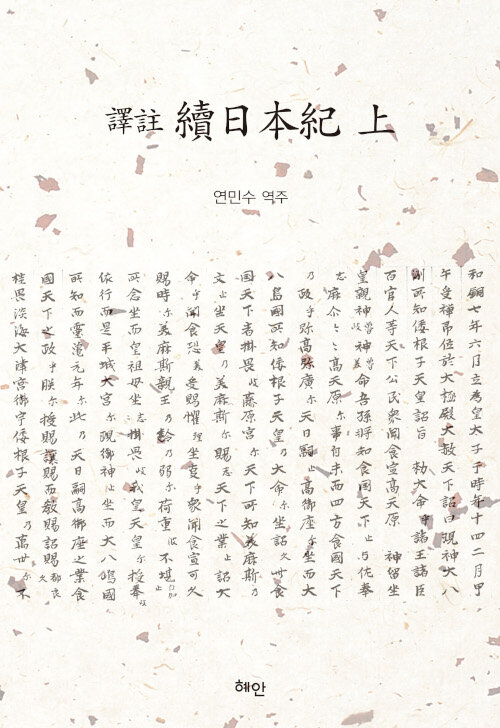 譯註 續日本紀 上
연민수 역주
和銅七年六月立為皇太子于時年十四二月甲
午受禅即位於大極殿大赦天下詔曰現神大八
洲所知倭根子天皇詔旨 勅大命乎諸王諸臣
百官人等天下公民衆聞食宣高天原 神留坐
皇親神魯岐神魯美命吾孫将知食國天下止与佐奉
志麻尓々高天原尓事自米而四方食國天下
乃政乎弥高弥廣尓天日嗣高御座乎坐而大
八嶋國所知倭根子天皇乃大命尓坐詔久此食
國天下者掛畏岐藤原宮尓天下所知美麻斯乃
父止坐天皇乃美麻斯尓賜志天下之業止詔大
命乎聞食恐美受賜懼理坐事乎衆聞食宣可久
賜時尓美麻斯親王乃齡乃弱尓荷重波不堪
所念坐而皇祖母坐志掛畏岐我皇天皇尓授奉岐
依行而是平城大宮尓現御神止坐而大八嶋國
所知而霊亀元年尓此乃天日嗣高御座之業食
國天下之政乎朕尓授賜讓賜而教賜詔賜都良久
挂畏淡海大津宮御宇倭根子天皇乃萬世尓不
혜안